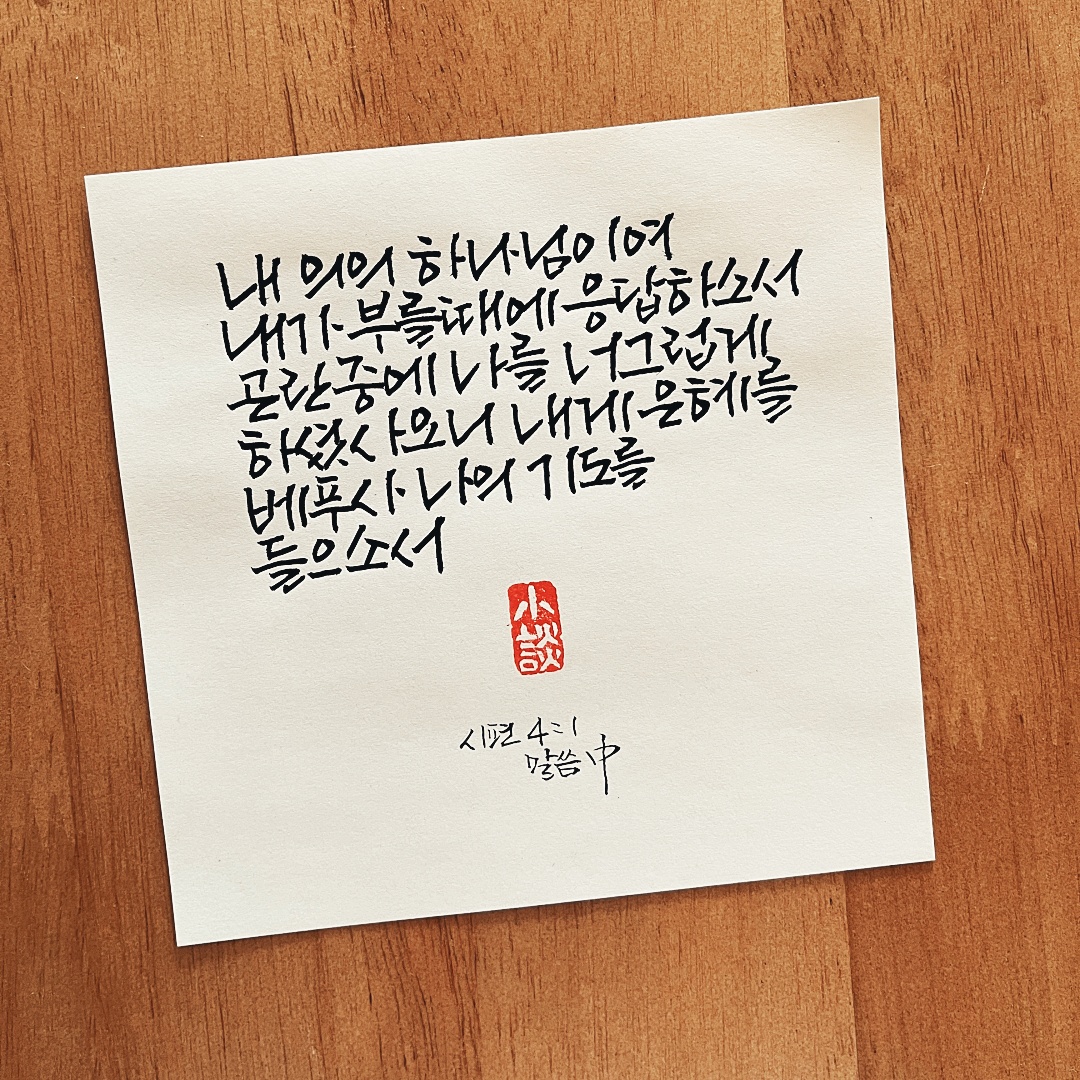 내 의의 하나님이여
내가 부를때에 응답하소서
곤란중에 나를 너그럽게
하셨사오니 내게 은혜를
베푸사 나의 기도를
들으소서
小
談
시편 4:1
말씀 中